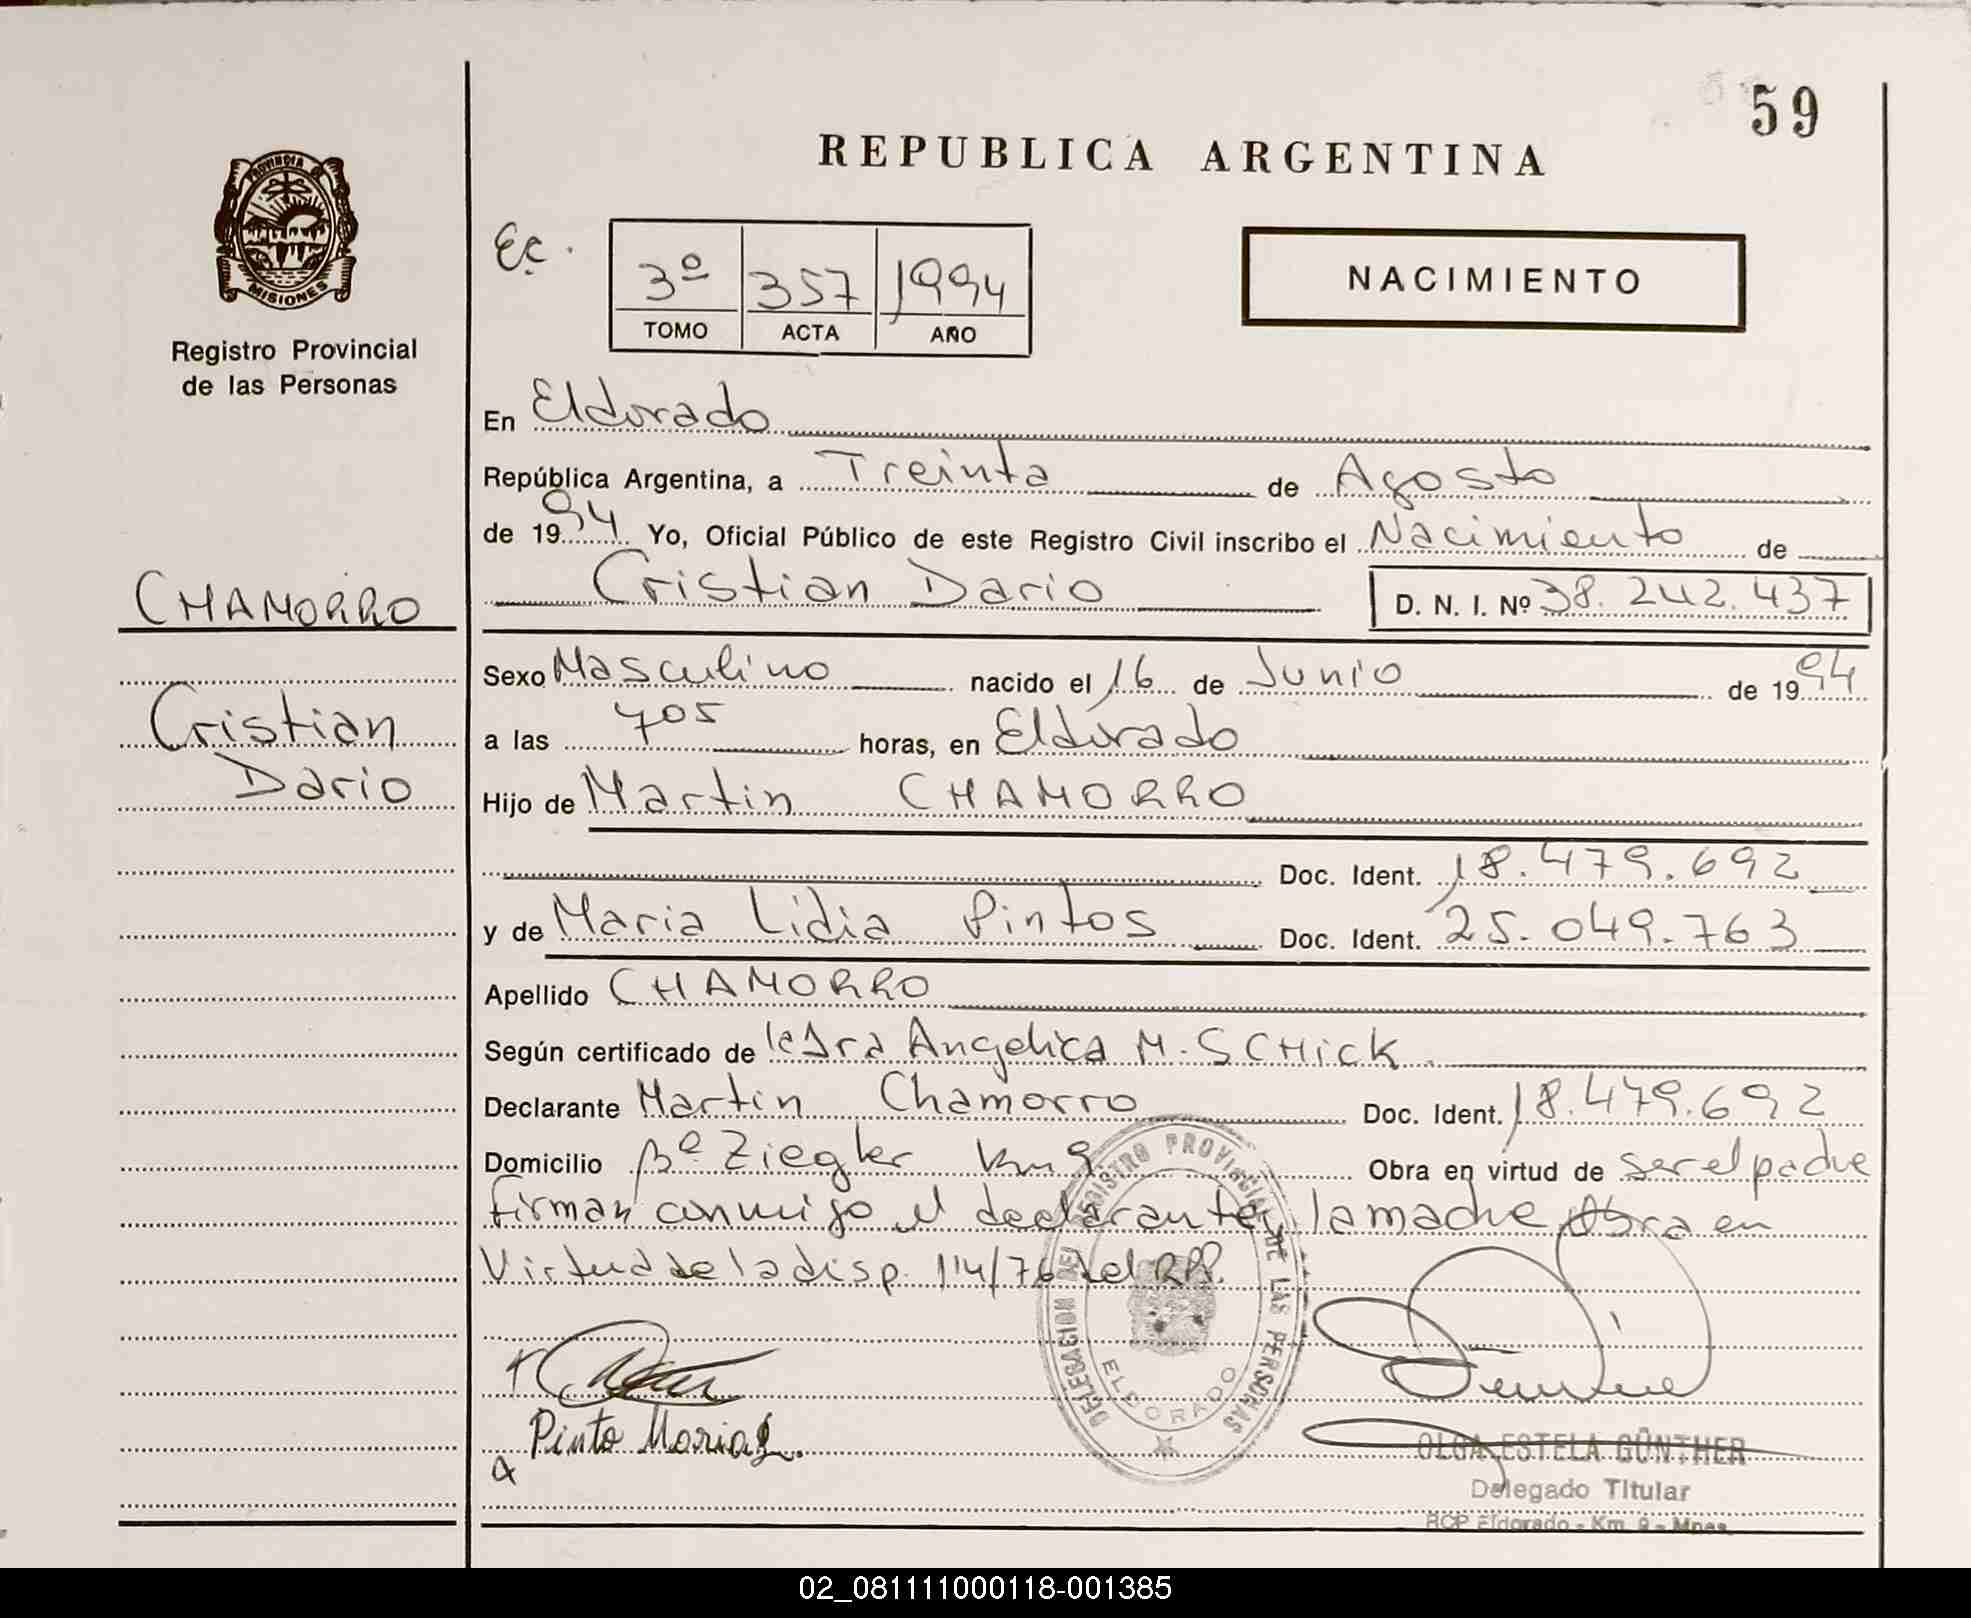 59
REPUBLICA ARGENTINA
PROVINCIA DE
MISIONES
Registro Provincial
de las Personas
3º 357 1994
TOMO ACTA AÑO
NACIMIENTO
En Eldorado
República Argentina, a Treinta de Agosto
de 1994 Yo, Oficial Público de este Registro Civil inscribo el Nacimiento de
Cristian Dario D. N. I. Nº 38.242.437
CHAMORRO
Cristian
Dario
Sexo Masculino nacido el 16 de Junio de 1994
a las 705 horas, en Eldorado
Hijo de Martin CHAMORRO
Doc. Ident. 18.479.692
y de Maria Lidia Pintos Doc. Ident. 25.049.763
Apellido CHAMORRO
Según certificado de la Dra Angelica M. SCHICK.
Declarante Martin Chamorro Doc. Ident. 18.479.692
Domicilio Bº Ziegler km 9 Obra en virtud de ser el padre
firman conmigo el declarante y la madre Obra en
Virtud de la disp. 114/76 del RPP.
DELEGACION DEL REGISTRO PROVINCIAL DE LAS PERSONAS
ELDORADO
Pinto Maria L.
OLGA ESTELA GÜNTHER
Delegado Titular
RCP Eldorado - Km. 9 - Mnes.
02_081111000118-001385